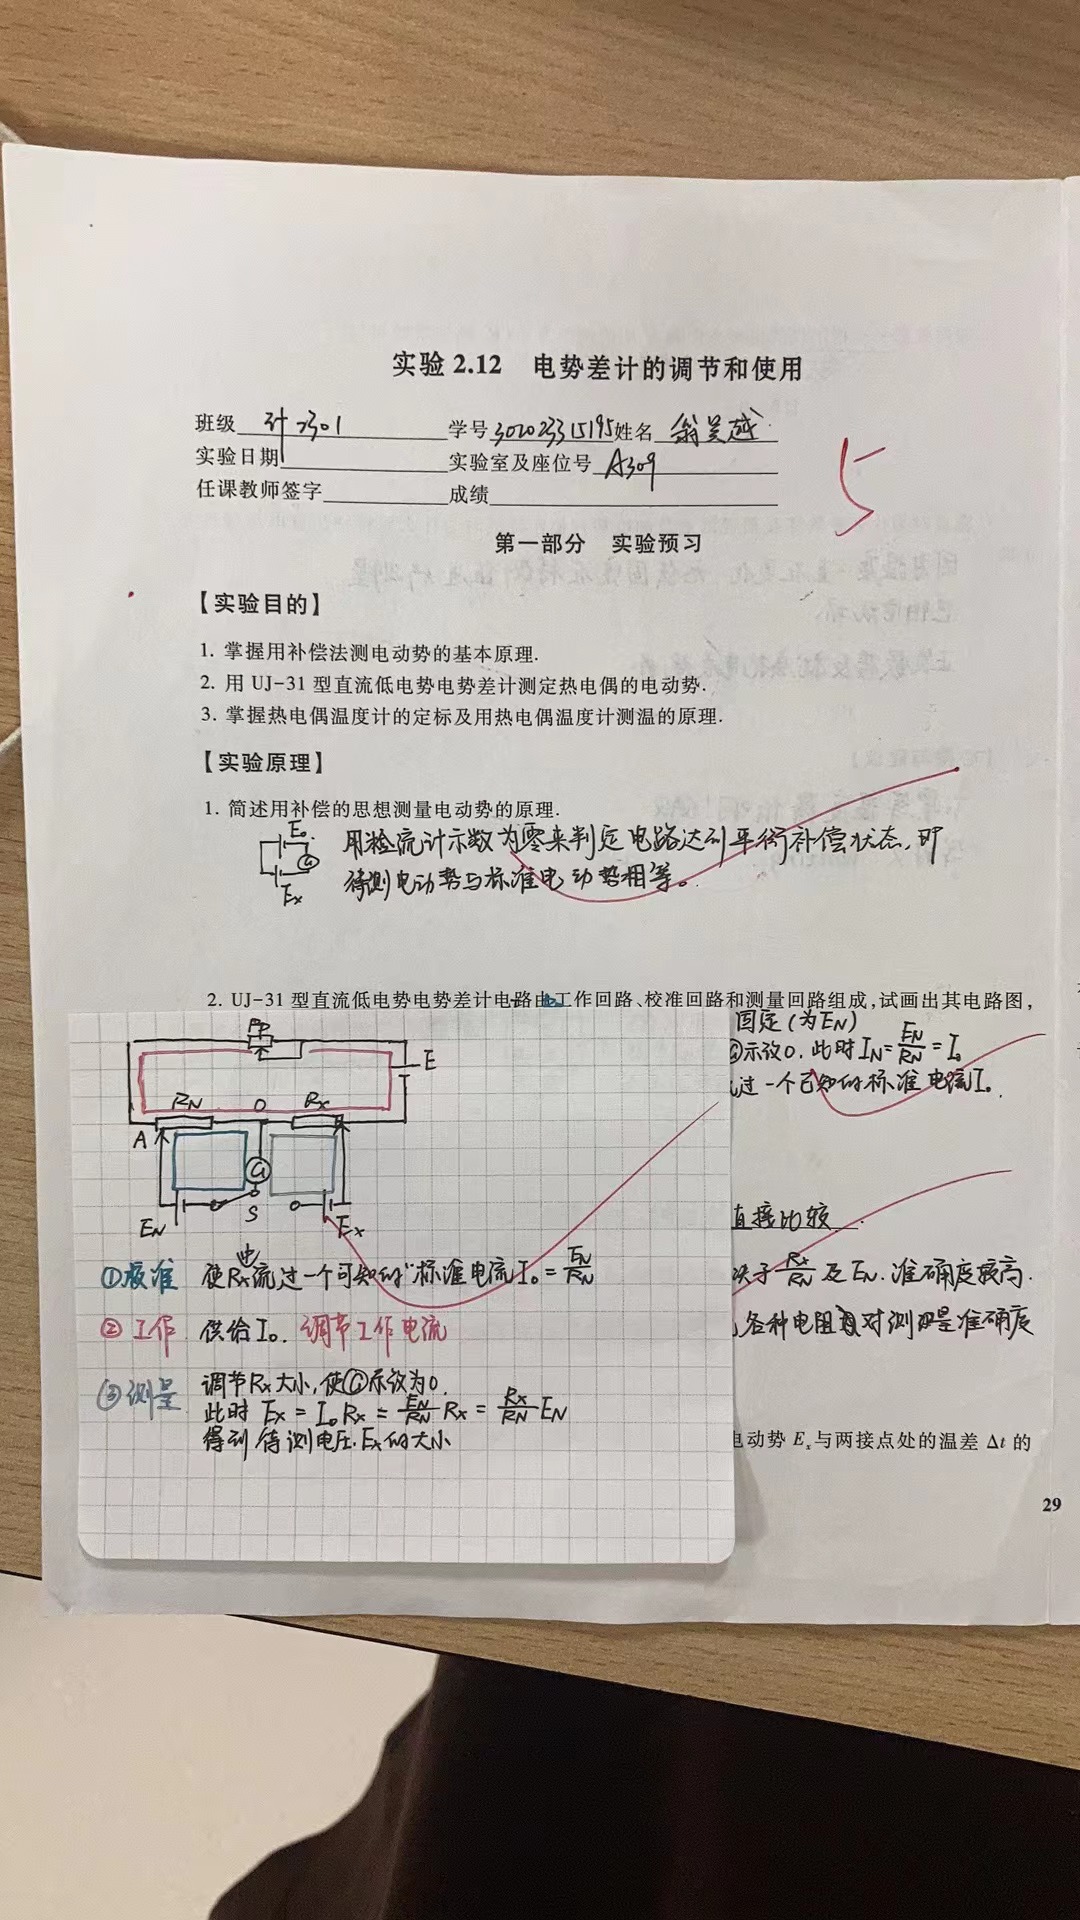 实验 2.12 电势差计的调节和使用
班级 计2301 学号 302023315195 姓名 翁昊越
实验日期 实验室及座位号 A309
任课教师签字 成绩
5
第一部分 实验预习
【实验目的】
1. 掌握用补偿法测电动势的基本原理.
2. 用 UJ-31 型直流低电势电势差计测定热电偶的电动势.
3. 掌握热电偶温度计的定标及用热电偶温度计测温的原理.
【实验原理】
1. 简述用补偿的思想测量电动势的原理.
E₀
G
Ex
用检流计示数为零来判定电路达到平衡补偿状态,即
待测电动势与标准电动势相等。
2. UJ-31 型直流低电势电势差计电路由工作回路、校准回路和测量回路组成,试画出其电路图,
固定(为EN)
G示数0. 此时 IN=EN/RN=I₀
过一个已知的标准电流I₀.
RP
E
RN O Rx
A
G
EN S Ex
直接比较.
决于Rx/RN及EN.准确度较高.
各种电阻 对测 是准确度
①校准 使Rx也流过一个可知的"标准电流I₀=EN/RN
②工作 供给I₀. 调节工作电流
③测量 调节Rx大小,使G示数为0.
此时 Ex=I₀Rx=EN/RN Rx=Rx/RN EN
得到待测电压Ex的大小
电动势 Eₓ与两接点处的温差 Δt 的
29